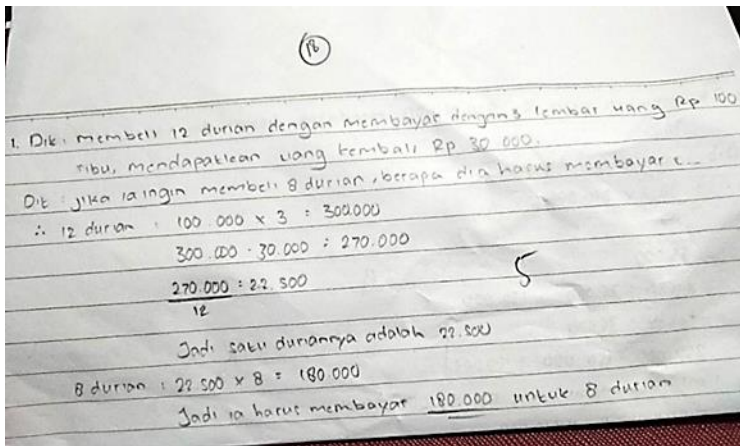 18
1. Dik : membeli 12 durian dengan membayar dengan 3 lembar uang Rp 100
ribu, mendapatkan uang kembali Rp 30 000.
Dit : jika ia ingin membeli 8 durian, berapa dia harus membayar ?...
∴ 12 durian : 100.000 x 3 = 300.000
300.000 - 30.000 = 270.000
270.000 = 22.500
12
5
Jadi satu duriannya adalah 22.500
8 durian : 22 500 x 8 = 180.000
Jadi ia harus membayar 180.000 untuk 8 durian